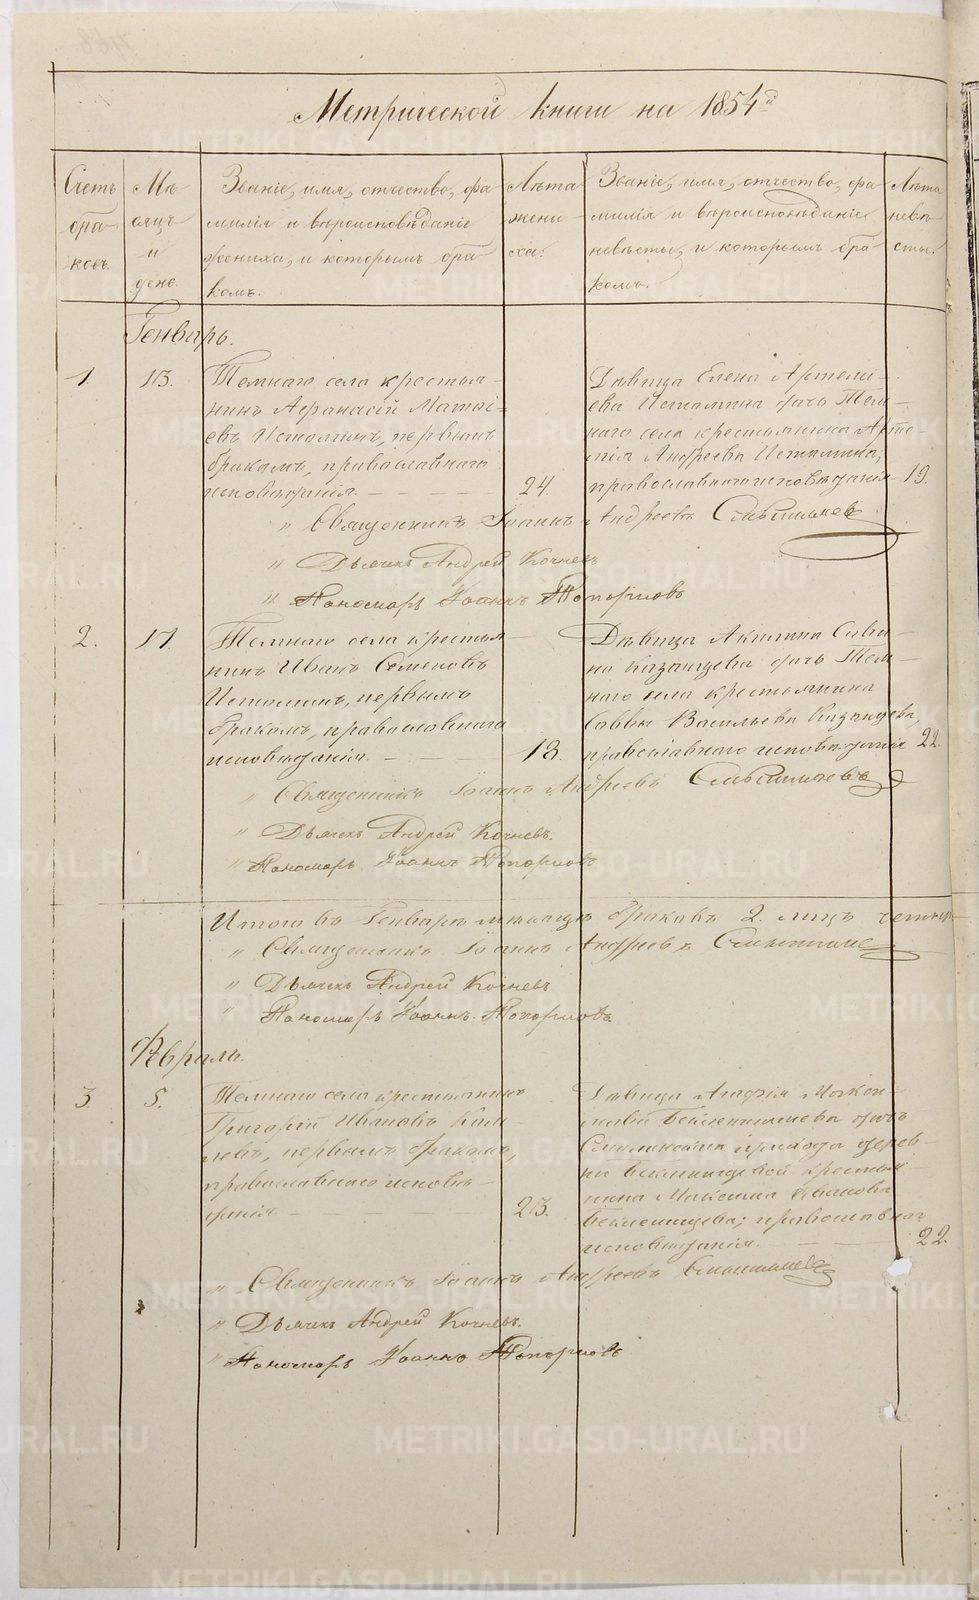 Метрической книги на 1854й
Счетъ
бра-
ковъ.
Мѣ-
сяцъ
и
день.
Званіе, имя, отчество, фа-
милія и вѣроисповѣданіе
жениха, и которымъ бра-
комъ.
Лѣта
жени-
ха.
Званіе, имя, отчество, фа-
милія и вѣроисповѣданіе
невѣсты, и которымъ бра-
комъ.
Лѣта
невѣ-
сты.
Генварь.
1.
13.
села крестья-
нинъ Афанасій
первымъ
бракомъ, православнаго
исповѣданія.
24.
Дѣвица Елена Артемі-
ева дочь
села крестьянина Арте-
мія Андреева
православнаго исповѣданія
19.
" Священникъ Іоаннъ Андреевъ
" Дьячекъ Андрей Кочневъ
" Пономарь Іоаннъ Топорковъ
2.
17.
села крестья-
нинъ Иванъ Семеновъ
первымъ
бракомъ, православнаго
исповѣданія.
18.
Дѣвица Акилина Савви-
на Казанцева дочь
села крестьянина
Саввы Васильева Казанцева,
православнаго исповѣданія
22.
" Священникъ Іоаннъ Андреевъ
" Дьячекъ Андрей Кочневъ.
" Пономарь Іоаннъ Топорковъ
Итого въ Генварѣ мѣсяцѣ браковъ 2. лицъ четыре
" Священникъ Іоаннъ Андреевъ
" Дьячекъ Андрей Кочневъ
" Пономарь Іоаннъ Топорковъ
Февраль.
3
5.
села крестьянинъ
Григорій Ивановъ
первымъ бракомъ,
православнаго исповѣ-
данія
23.
Дѣвица
дочь
прихода дерев-
ни крестья-
нина Максима Иванова
православнаго
исповѣданія.
22.
" Священникъ Іоаннъ Андреевъ
" Дьячекъ Андрей Кочневъ.
" Пономарь Іоаннъ Топорковъ
METRIKI.GASO-URAL.RU